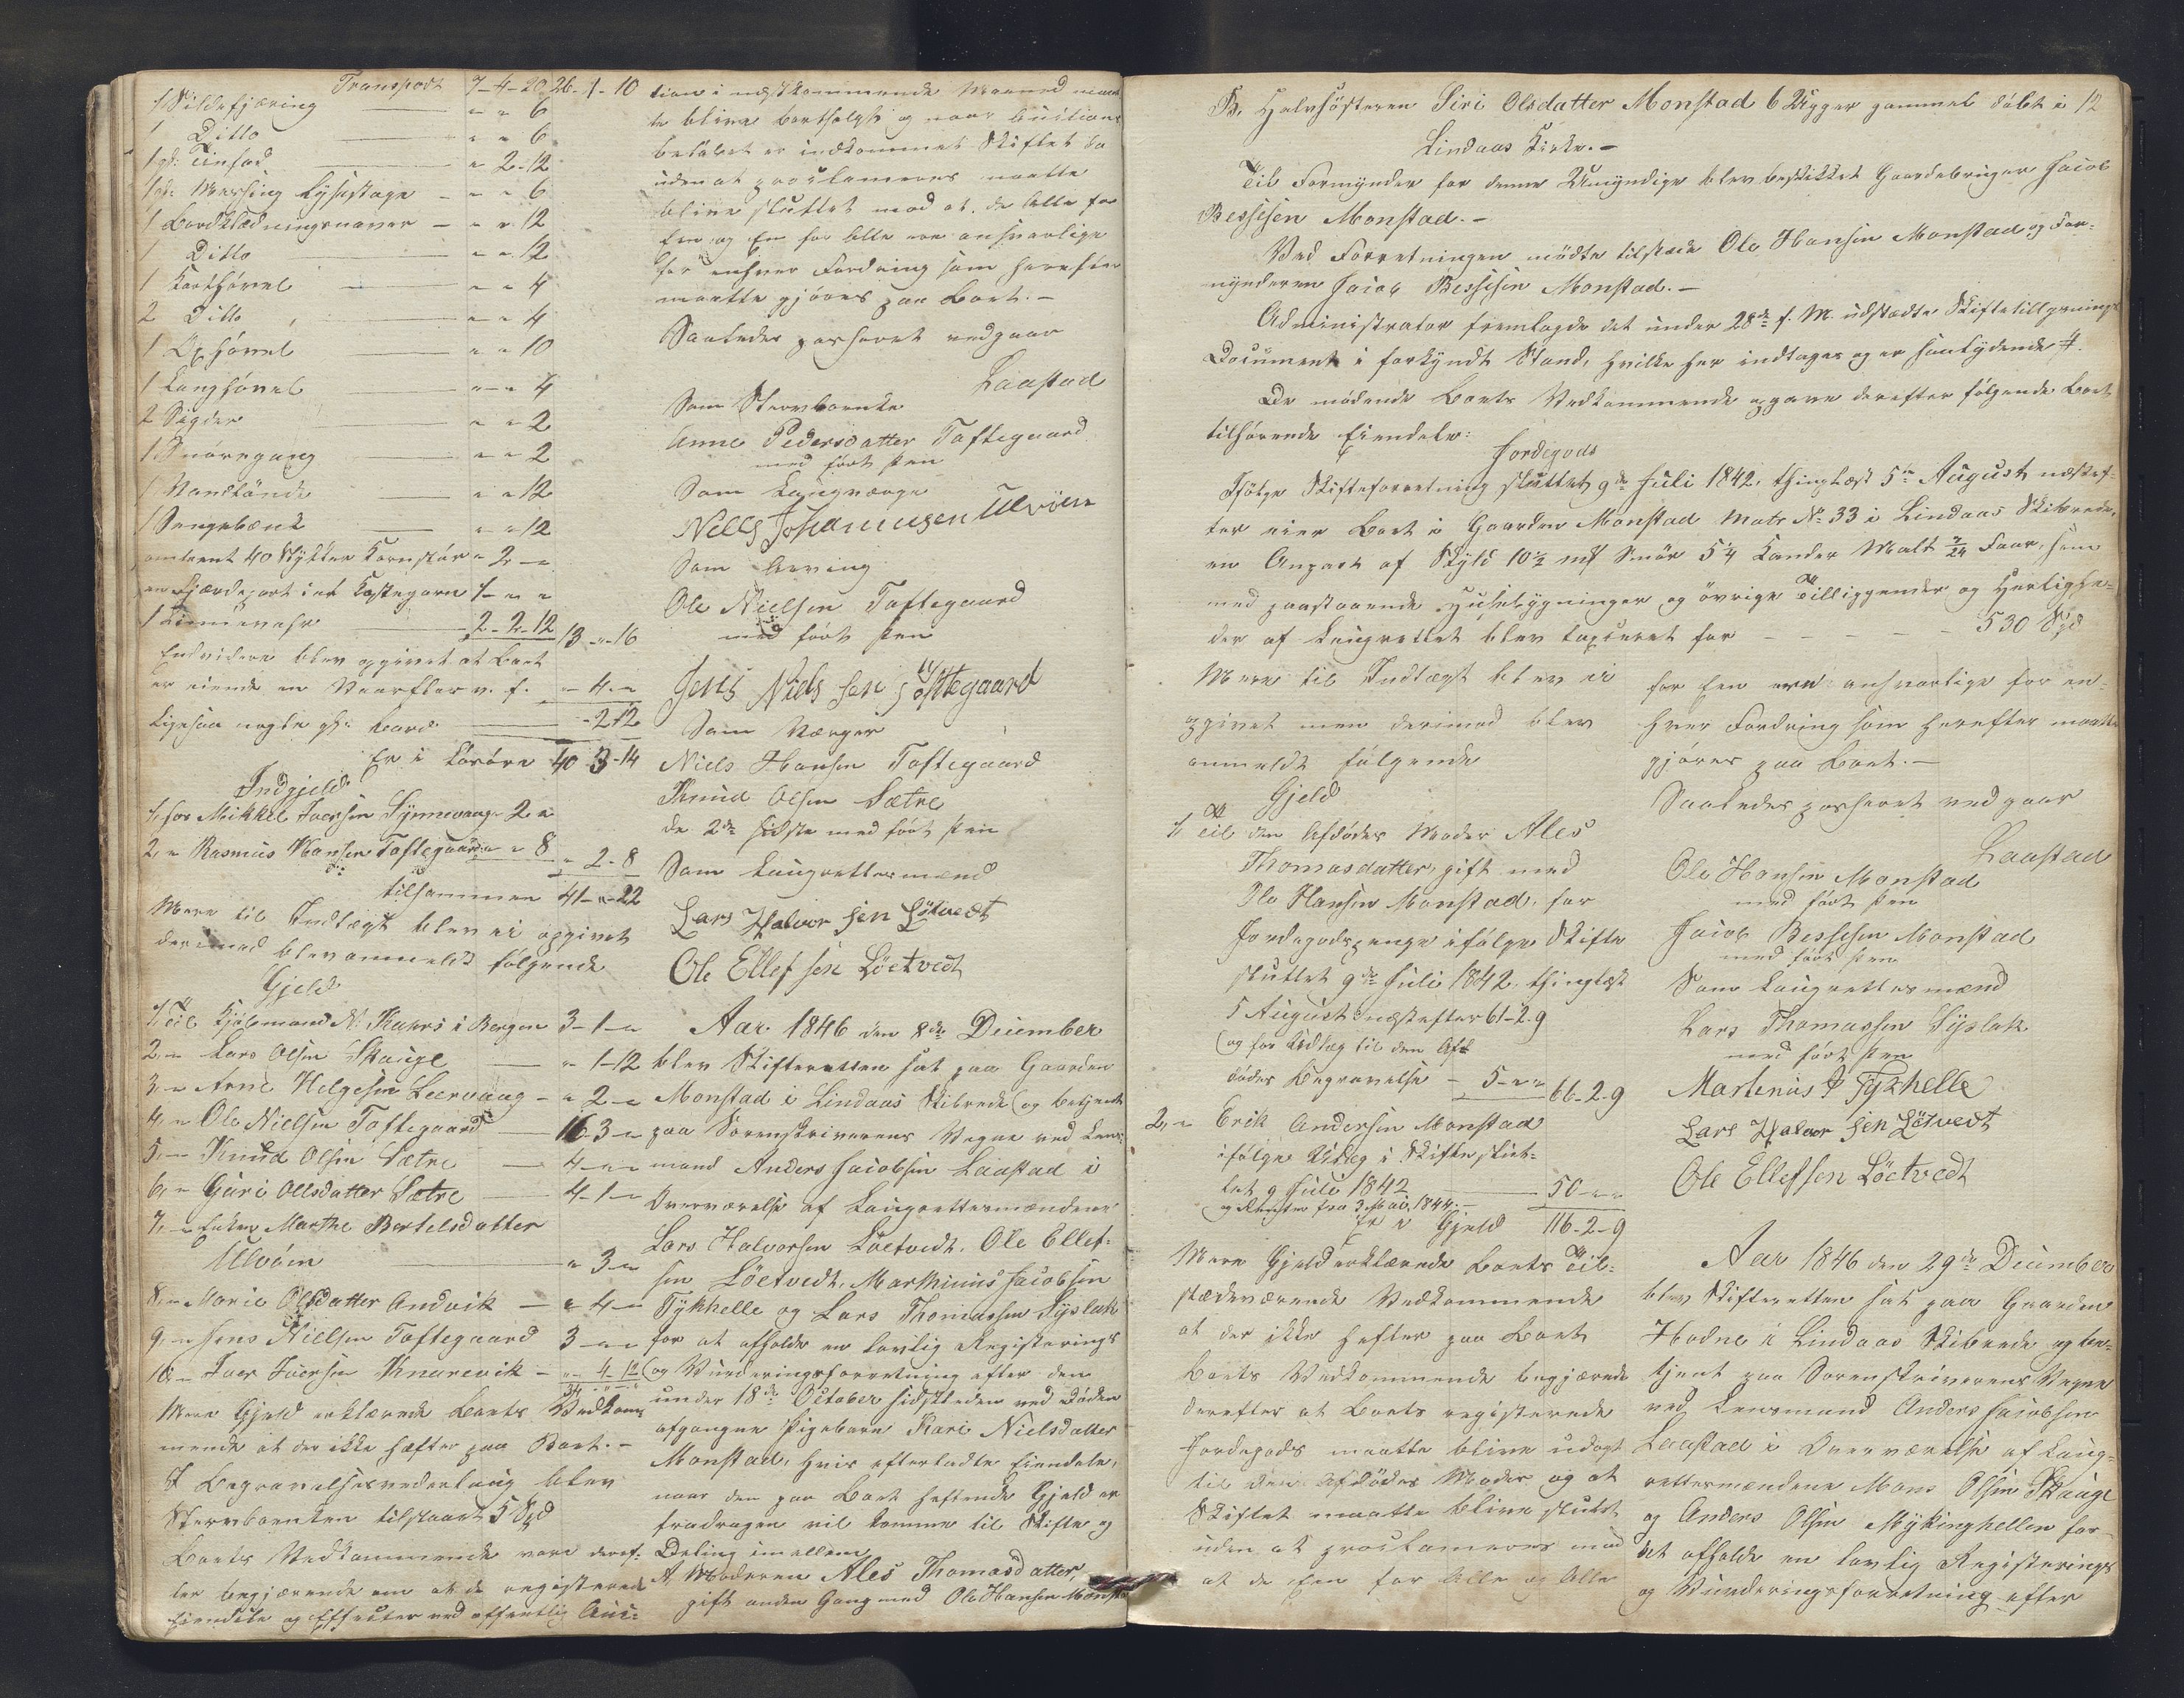 Transport 7-4-20 26-1-10
1 Sildefjæring " " 6
1 Ditto " " 6
1 gl: Tinfad " 2-12
1 gl: Messing Lysestage " " 6
1 Bordklædningsnaver " " 12
1 Ditto " " 12
1 Karthövel " " 4
2 Ditto " " 4
1 Oxhövel " " 10
1 Langhövel " " 4
2 Sigder " " 2
1 Snöregang " " 2
1 Vandtönde " " 12
1 Sengebænk " " 12
omtrent 40 Stykker Kornstör " 2 "
en Fjerdepart i et Kastegarn 1 " "
2-2-12 13-"-16
Endvidere blev opgivet at Boet
er eiende en v. f. " 4 "
Ligesaa nogle gl: Bord - 2-12
Er i Løsøre 40 3-14
Indgjeld
1, hos Mikkel Iversen Synnevaag 2 "
2, " Rasmus Hansen Toftegaard " " 8 " 2-8
tilsammen 41-"-22
Mere til Indtægt blev ei opgivet
derimod blev anmeldt følgende
Gjeld
1, Til Kjøbmand N. Krohn i Bergen 3-1-"
2, " Lars Olsen Skauge " 1-12
3, " Arne Helgesen Leervaag " 2 "
4, " Ole Nielsen Toftegaard 16-3-"
5, " Knud Olsen Sætre 4 " "
6, " Guri Ollsdatter Sætre 4-1-"
7, " Enken Marthe Bertelsdatter
Ulvöen " 3 "
8, " Marie Olsdatter Andvik " 4 "
9, " Jens Nielsen Toftegaard 3 " "
10, " Iver Iversen Knarevik " 4-12
Mere Gjeld erklærede Boets Vedkom-
mende at der ikke hæfter paa Boet.-
I Begravelsesvederlaug blev
Stervboenken tilstaaet 5 Spd
Boets Vedkommende vare deref-
ter begjærende om at de registerede
Eiendele og Effecter ved offentlig Auc-
tion i næstkommende Maaned maat-
te blive bortsolgt og naar Auctions
beløbet er indkommet Skiftet da
uden at proclameres maatte
blive sluttet mod at de Alle for
Een og Een for Alle ere ansvarlige
for enhver Fordring som herefter
maatte gjøres paa Boet.-
Saaledes passeret vedgaar
Laastad
Som Stervboenke
Anne Pedersdatter Toftegaard
med ført Pen
Som Laugværge
Nells Johannesen Ulvöen
Som Arving
Ole Nielsen Toftegaard
med ført Pen
Jens Niels sen Toftegaard
Som Værger
Niels Hansen Toftegaard
Knud Olsen Sætre
de 2de sidste med ført Pen
Som Laugrettesmænd
Lars Halvor sen Lötvedt
Ole Ellef sen Löetvedt
Aar 1846 den 8de December
blev Skifteretten sat paa Gaarden
Monstad i Lindaas Skibrede og betjent
paa Sorenskriverens Vegne ved Lens-
mand Anders Jacobsen Laastad i
Overværelse af Laugrettesmændene
Lars Halvorsen Löetvedt, Ole Ellef-
sen Löetvedt, Marthinus Jacobsen
Fykhelle og Lars Thomassen Syslak
for at afholde en lovlig Registerings
og Vurderingsforretning efter den
under 18de October sidstleden ved Døden
afgangne Pigebarn Kari Nielsdatter
Monstad, hvis efterladte Eiendele,
naar den paa Boet heftende Gjeld er
fradragen vil komme til Skifte og
Deling imellem
A, Moderen Ales Thomasdatter,
gift anden Gang med Ole Hansen Monstad
B, Halvsøsteren Siri Olsdatter Monstad 6 Uger gammel døbt i 12
Lindaas Kirke.-
Til Formynder for denne Umyndige blev beskikket Gaardebruger Jacob
Bessesen Monstad.-
Ved Forretningen mødte tilstede Ole Hansen Monstad og For-
mynderen Jacob Bessesen Monstad.-
Administrator fremlagde det under 28de f. M. udstædte Skiftetillysnings
Document i forkyndt Stand, hvilke her indtages og er saalydende #.
De mødende Boets Vedkommende opgave derefter følgende Boet
tilhørende Eiendele:
Jordegods
Ifølge Skifteforretning sluttet 9de Juli 1842, thinglæst 5te August næstef-
ter eier Boet i Gaarden Monstad Matr No 33 i Lindaas Skibrede,
en Anpart af Skyld 10½ mk Smör 5¼ Kander Malt 7/24 Faar, som
med paastaaende Huusebygninger og øvrige Tilliggender og Herlighe-
der af Laugrettet blev taxeret for - - - - - 530 Spd
Mere til Indtægt blev ei
opgivet men derimod blev
anmeldt følgende
Gjeld
1, Til den Afdødes Moder Ales
Thomasdatter, gift med
Ole Hansen Monstad, for
Jordegodspenge ifølge Skifte
sluttet 9de Juli 1842, thinglæst
5 August næstefter 61-2-9
og for Udlæg til den Af-
dødes Begravelse - 5 " " 66-2-9
2, " Erik Andersen Monstad
ifølge Udlæg i Skifte slut-
tet 9 Juli 1842 50 " "
og Renter fra 3 Mai 1844.-
Er i Gjeld 116-2-9
Mere Gjeld erklærede Boets Til-
stedeværende Vedkommende
at der ikke hefter paa Boet
Boets Vedkommende begjærede
derefter at Boets registerede
Jordegods maatte blive udlagt
til den Afdødes Moder og at
Skiftet maatte blive sluttet
uden at proclameres mod
at de Een for Alle og Alle
for Een ere ansvarlige for en-
hver Fordring som herefter maatte
gjøres paa Boet.-
Saaledes passeret vedgaar
Laastad
Ole Hansen Monstad
med ført Pen
Jacob Bessesen Monstad
med ført Pen
Som Laugrettesmænd
Lars Thomassen Syslak
med ført Pen
Martenus J Fykhelle
Lars Halvor sen Lötvedt
Ole Ellefsen Löetvedt
Aar 1846 den 29de December
blev Skifteretten sat paa Gaarden
Hodne i Lindaas Skibrede og be-
tjent paa Sorenskriverens Vegne
ved Lensmand Anders Jacobsen
Laastad i Overværelse af Laug-
rettesmændene Mons Olsen Skauge
og Anders Olsen Mykinghellen for
at afholde en lovlig Registerings
og Vurderingsforretning efter